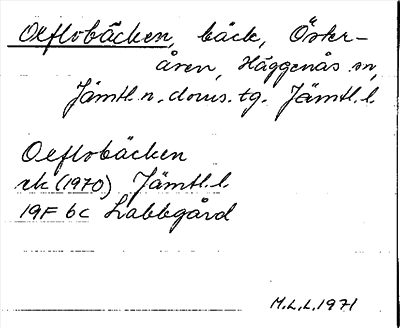 Oeflobäcken, bäck, Öster-
åren, Häggenås sn,
Jämtl. n. doms. tg. Jämtl. l.
Oeflobäcken
rk (1970) Jämtl. l.
19F 6c Labbgård
M.L.L. 1971